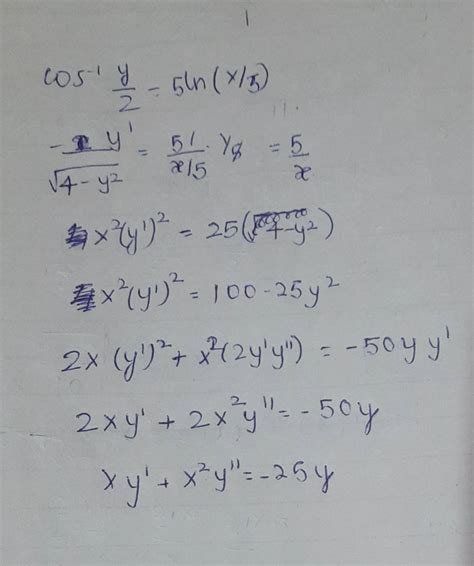 1
cos⁻¹ y/2 = 5ln(x/5)
- y'/√(4-y²) = 51/x/5 · 1/5 = 5/x
x²(y')² = 25(4-y²)
x²(y')² = 100-25y²
2x(y')² + x²(2y'y'') = -50y y'
2xy' + 2x²y'' = -50y
xy' + x²y'' = -25y